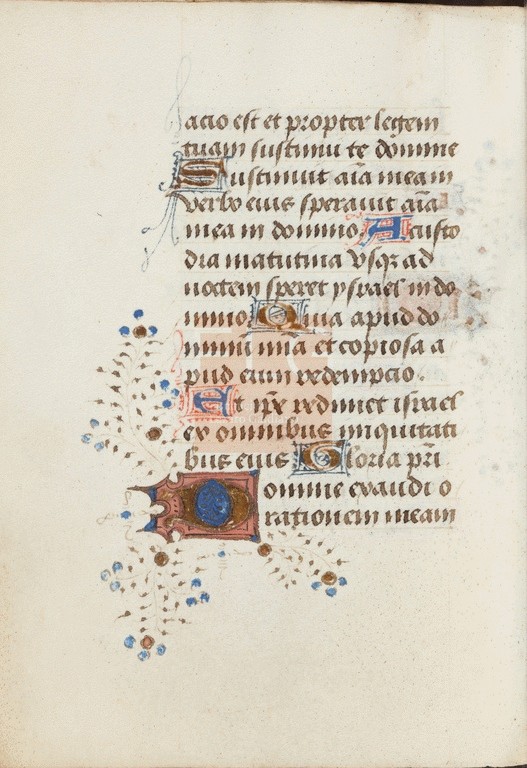 acio est et propter legem
tuam sustinui te domine
Sustinuit aīa meam
verbo eius speravit aīa
mea in domino. A custo
dia matutina vsqꝫ ad
noctem speret ysrael in do
mino Quia apud do
minū mīa et copiosa a
pud eum redempcio.
Et ipē redimet israel
ex omnibus iniquitati
bus eius Gloria pr̄i
Domine exaudi o
rationem meam